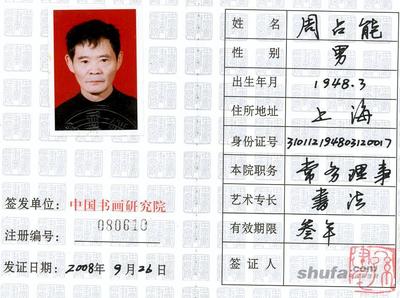 签发单位：中国书画研究院
注册编号：080610
发证日期：2008年9月26日
姓名 周占能
性别 男
出生年月 1948.3
住所地址 上海
身份证号 310112194803120017
本院职务 常务理事
艺术专长 书法
有效期限 叁年
签证人
shufa.com